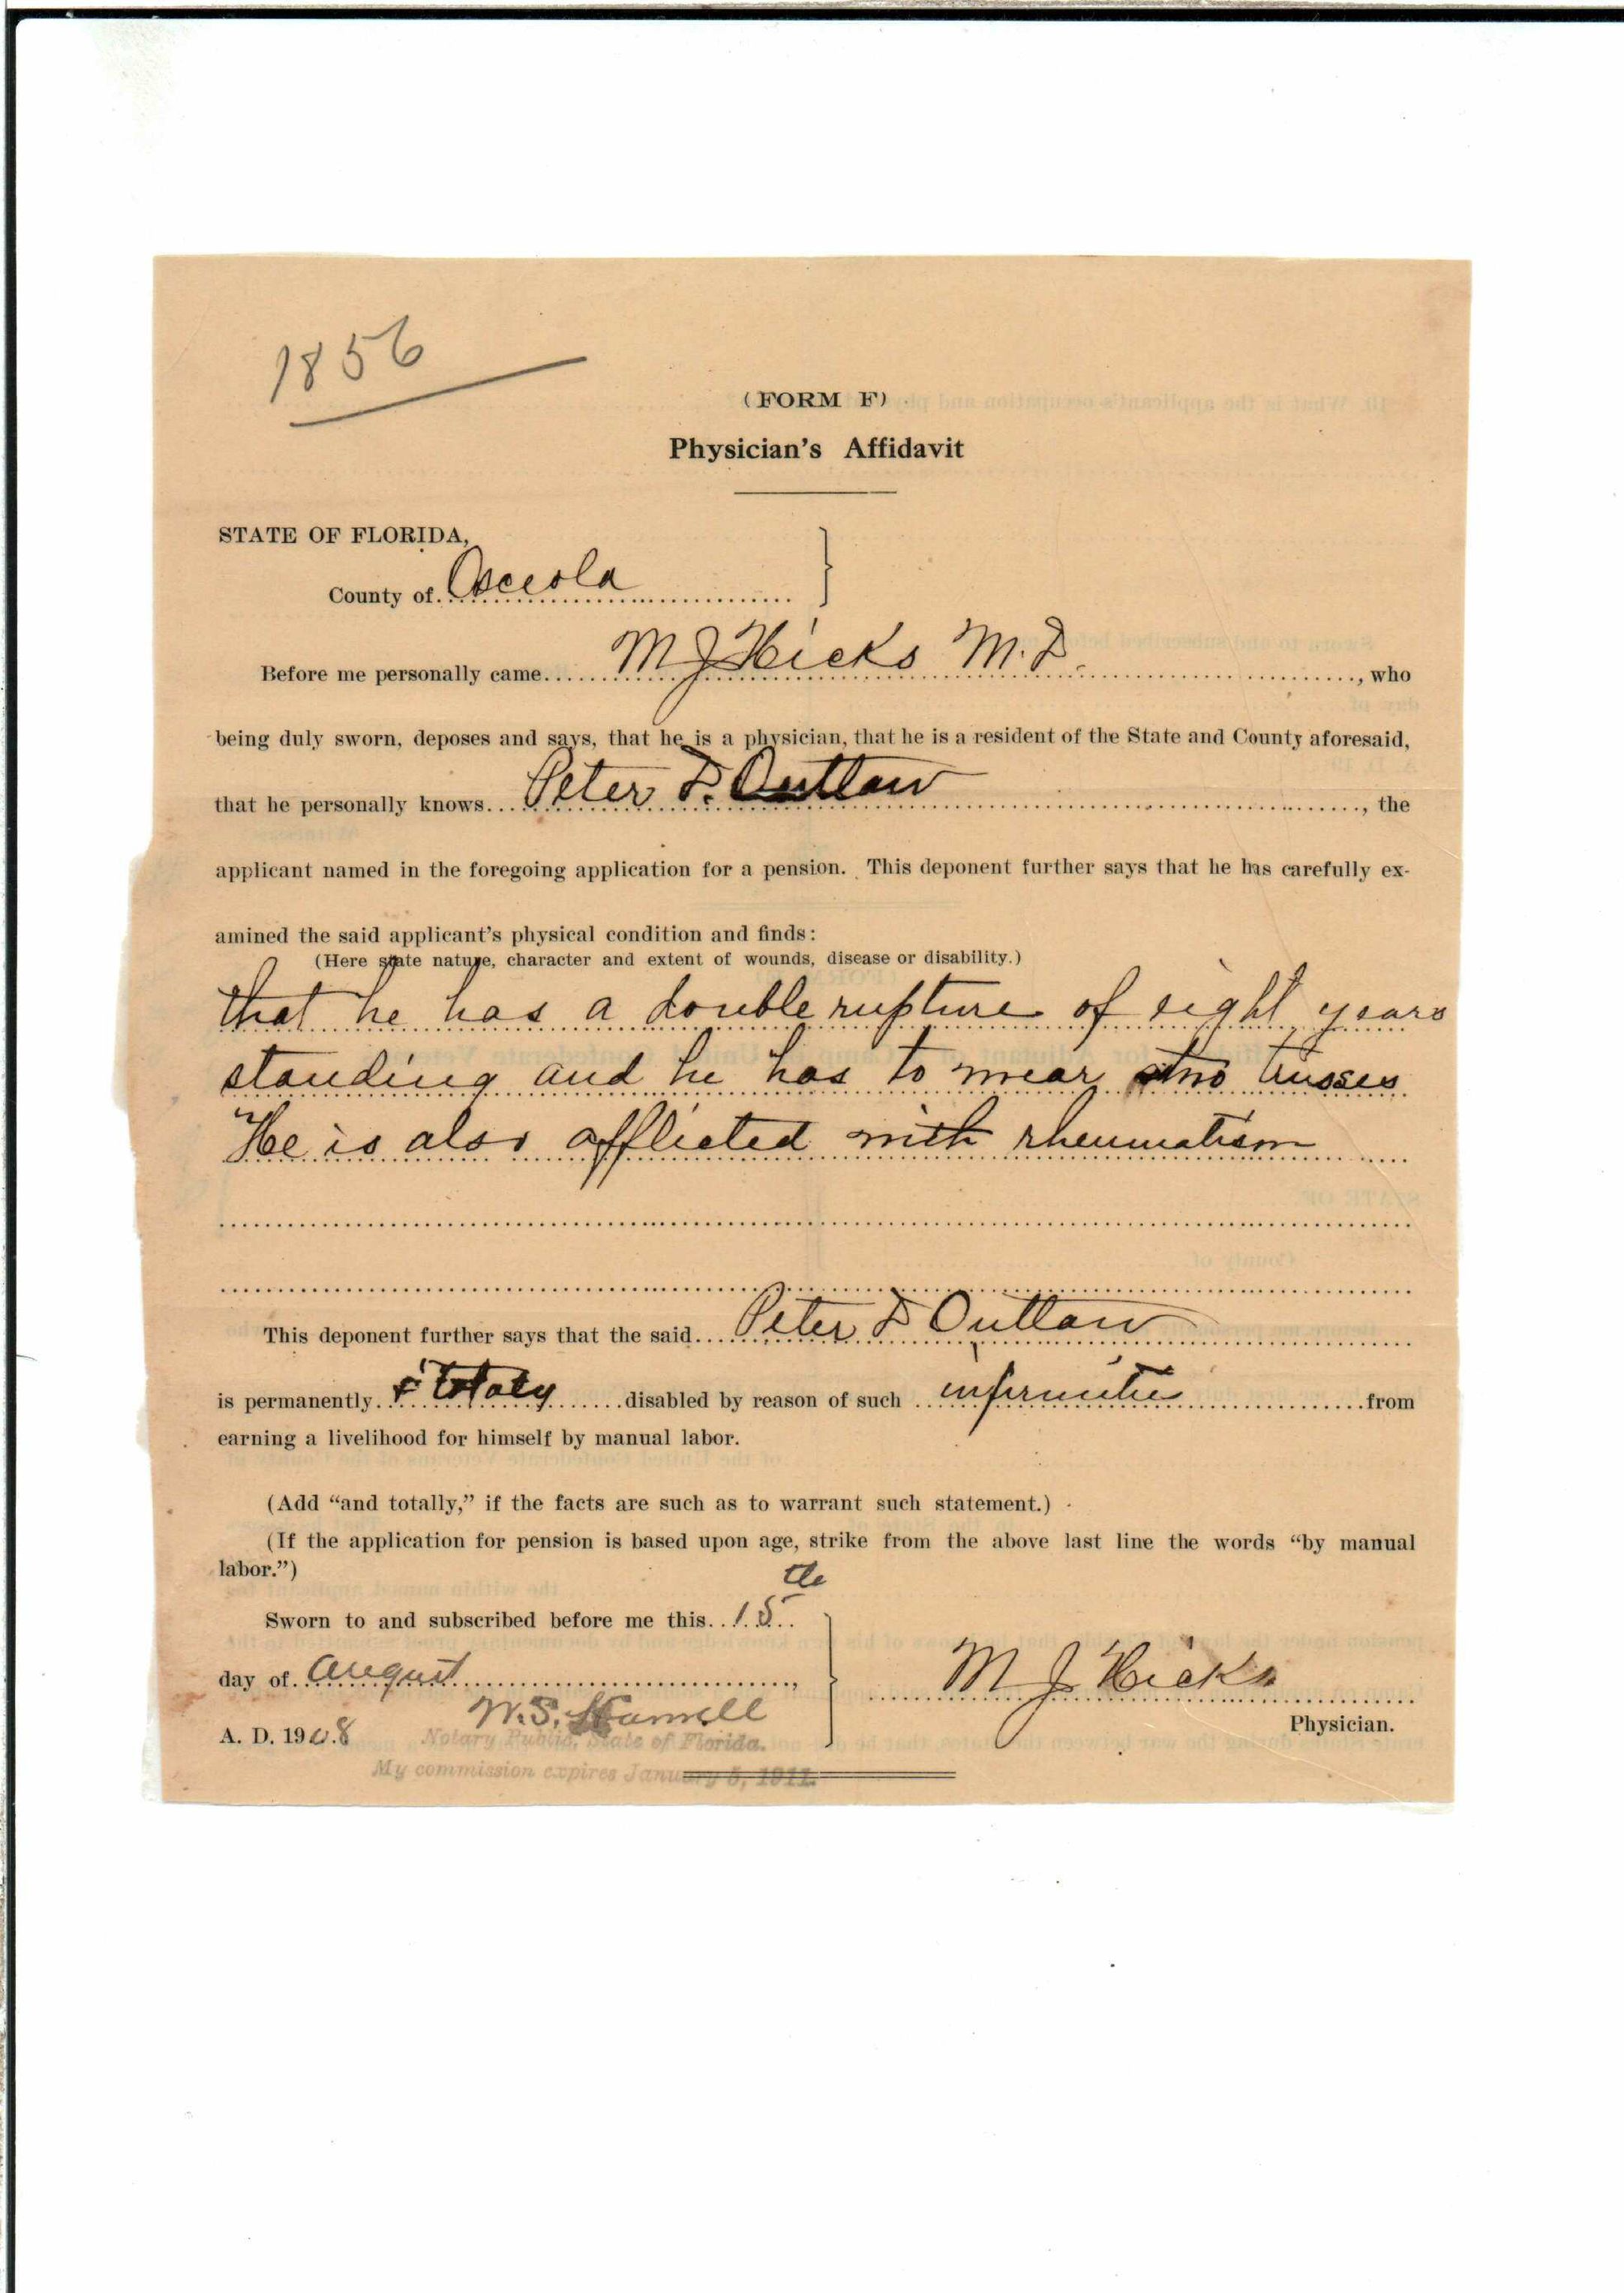 1856
(FORM F)
Physician's Affidavit
STATE OF FLORIDA,
County of Osceola
Before me personally came M J Hicks M.D., who
being duly sworn, deposes and says, that he is a physician, that he is a resident of the State and County aforesaid,
that he personally knows Peter D. Outlaw, the
applicant named in the foregoing application for a pension. This deponent further says that he has carefully ex-
amined the said applicant's physical condition and finds:
(Here state nature, character and extent of wounds, disease or disability.)
that he has a double rupture of eight years
standing and he has to wear two trusses
He is also afflicted with rheumatism
This deponent further says that the said Peter D Outlaw
is permanently & totaly disabled by reason of such infirmitie from
earning a livelihood for himself by manual labor.
(Add “and totally,” if the facts are such as to warrant such statement.)
(If the application for pension is based upon age, strike from the above last line the words “by manual
labor.”)
Sworn to and subscribed before me this 15th
day of August,
A. D. 1908
W.S.
Notary Public, State of Florida.
My commission expires January 5, 1911.
M J Hicks
Physician.